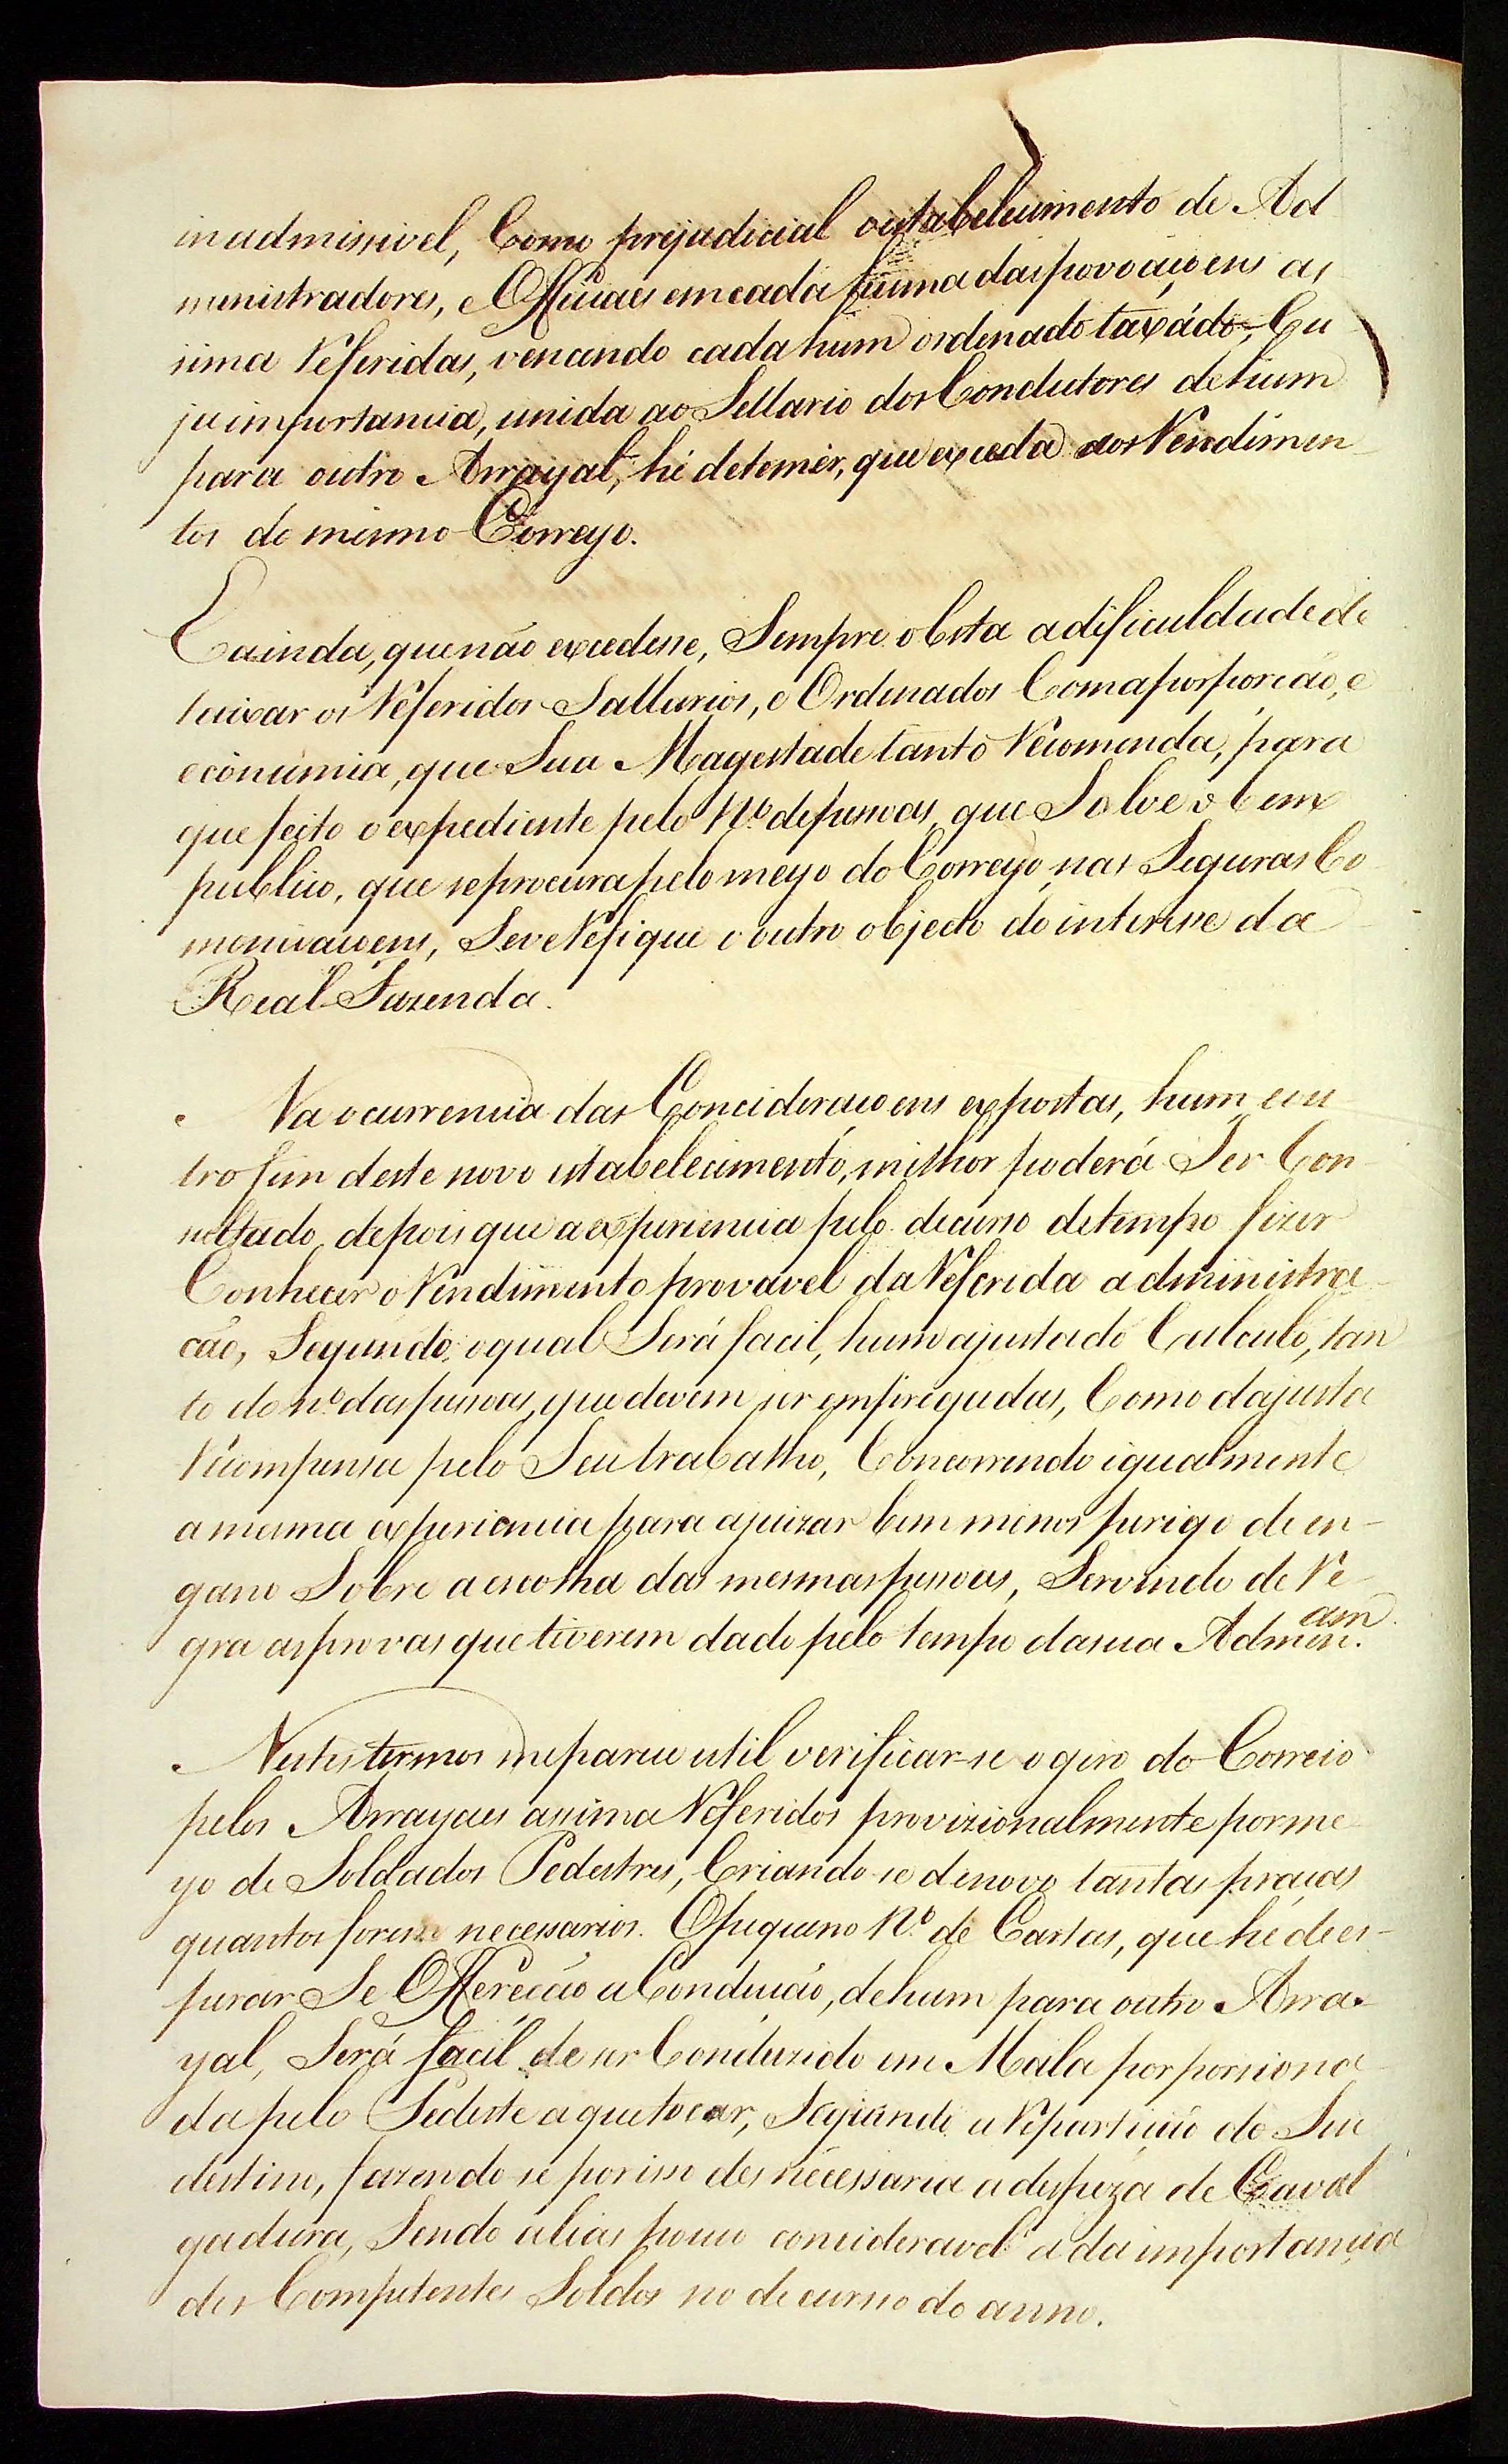 inadmissivel, Como prejudicial o estabelecimento de Ad
ministradores, e Officiaes em cada huma das povoaçoens as
sima Referidas, vencendo cada hum ordenado taxádo, Cu
ja importancia, unida ao Sellario dos Condutores de hum
para outro Arrayal, hé de temer, que exceda aos Rendimen
tos do mesmo Correyo.
E ainda, que não excedesse, Sempre obsta a dificuldade de
taixar os Referidos Sallarios, e Ordenados Com a porporcão, e
economia, que Sua Magestade tanto Recomenda, para
que feito o expediente pelo N.º de pessoas, que Salve o bem
publico, que se procura pelo meyo do Correyo, nas Seguras Co
monicaçoens, Se verefique o outro objecto do interesse da
Real Fazenda.
Na ocurrencia das Concideraçoens expostas, hum, e ou
tro fim deste novo estabelecimento, milhor poderá Ser Con
soltado, depois que a experiencia pelo decurso de tempo fizer
Conhecer o Rendimento provavel da Referida administra
ção, Segundo, o qual Será facil, hum ajustado Calculo, tan
to do n.º das pessoas, que devem ser empregadas, Como da justa
Recompensa pelo Seu trabalho, Concorrendo igualmente
a mesma experiencia para ajuizar Com menos perigo de en-
gano Sobre a escolha das mesmas pessoas, Servindo de Re
gra as provas que tiverem dado pelo tempo da sua Admen.am
Nestes termos me parece util verificar-se o giro do Correio
pelos Arrayaes assima Referidos provizionalmente por me
yo de Soldados Pedestres, Criando-se de novo tantas praças
quantos forem necessarios. O pequeno N.º de Cartas, que hé de es-
perar Se Offereção a Condução, de hum para outro Arra-
yal, Será facil de ser Conduzido em Mala porporciona
da pelo Pedeste a que tocar, Segundo a Repartição do Seu
destino, fazendo-se por isso desnecessaria a despeza de Caval
gadura, Sendo alias pouco concideravel a da importancia
dos Competentes Soldos no decurso do anno.